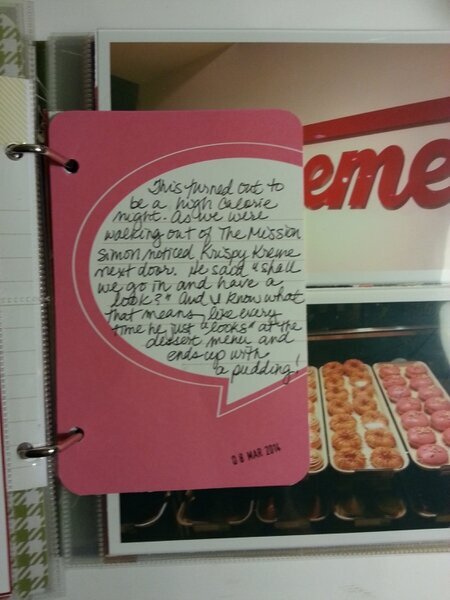 This turned out to
be a high calorie
night. As we were
walking out of The Mission
Simon noticed Krispy Kreme
next door. He said "shall
we go in and have a
look?" And I know what
that means, like every
time he just "looks" at the
dessert menu and
ends up with
a pudding!
08 MAR 2014
eme